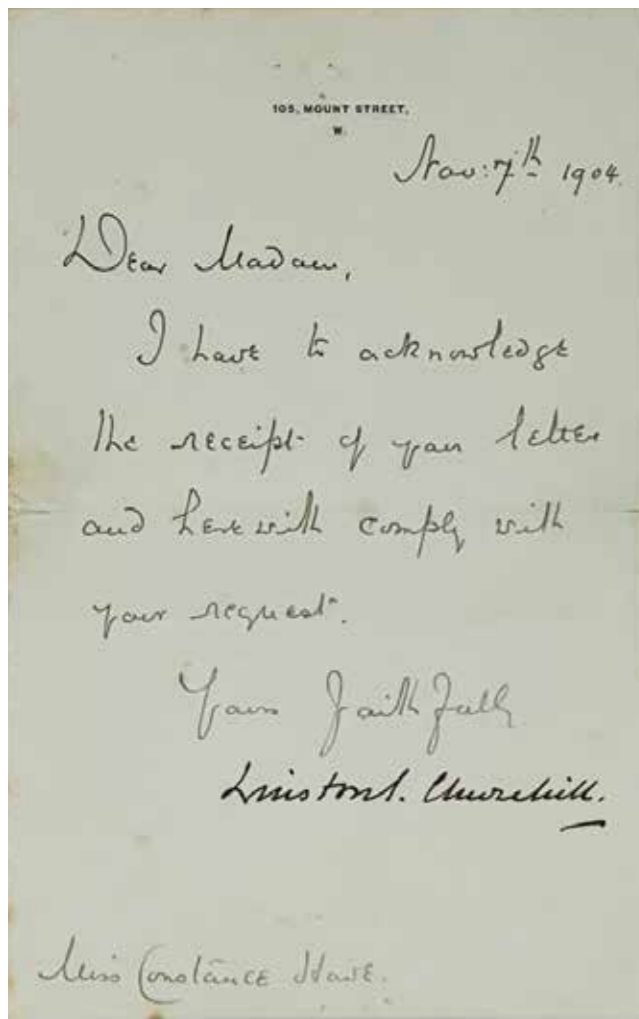 105, MOUNT STREET,
W.
Nov: 7th 1904.
Dear Madam,
I have to acknowledge
the receipt of your letter
and herewith comply with
your request.
Yours faithfully
Winston S. Churchill.
Miss Constance